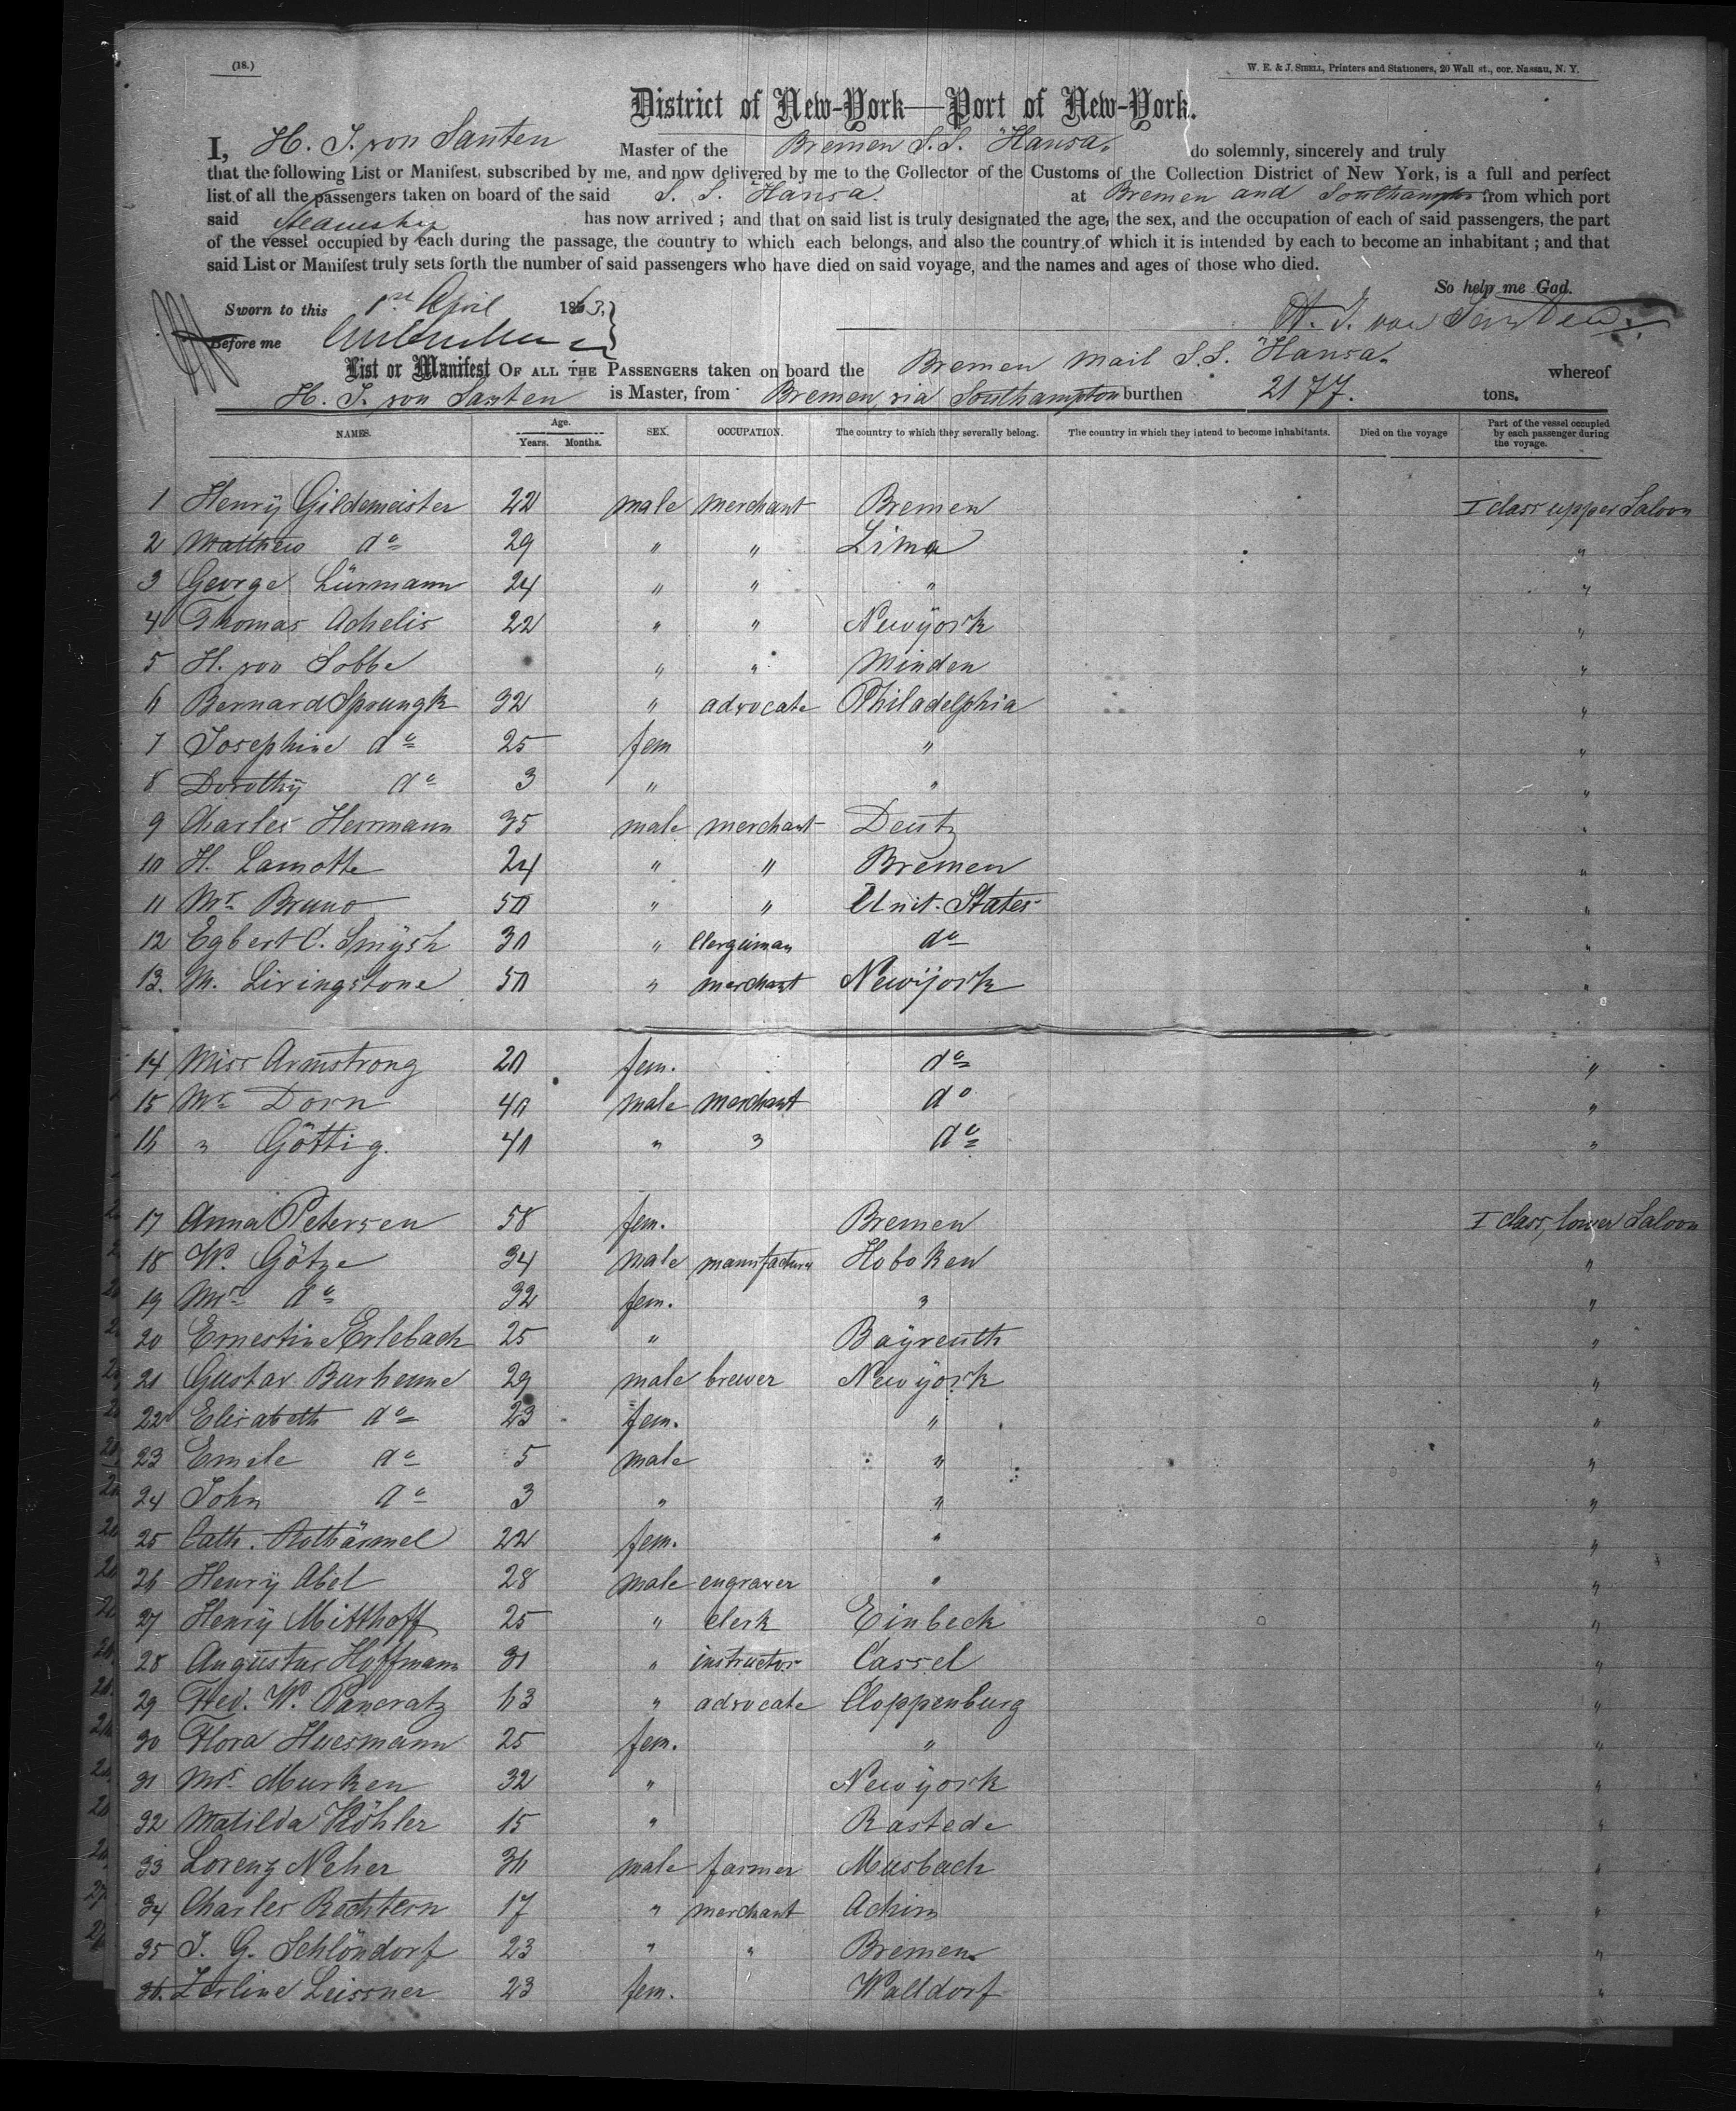 (18.)
W. E. & J. SIBELL, Printers and Stationers, 20 Wall st., cor. Nassau, N. Y.
District of New-York—Port of New-York.
I, H. J. von Santen Master of the Bremen S.S. "Hansa" do solemnly, sincerely and truly
that the following List or Manifest, subscribed by me, and now delivered by me to the Collector of the Customs of the Collection District of New York, is a full and perfect
list of all the passengers taken on board of the said S. S. "Hansa" at Bremen and Southampton from which port
said Steamship has now arrived ; and that on said list is truly designated the age, the sex, and the occupation of each of said passengers, the part
of the vessel occupied by each during the passage, the country to which each belongs, and also the country of which it is intended by each to become an inhabitant ; and that
said List or Manifest truly sets forth the number of said passengers who have died on said voyage, and the names and ages of those who died.
So help me God.
Sworn to this 1st April 1863. H. J. von Santen
Before me
List or Manifest OF ALL THE PASSENGERS taken on board the Bremen Mail S.S. "Hansa" whereof
H. J. von Santen is Master, from Bremen, via Southampton burthen 2177. tons.
NAMES. Age. Years. Months. SEX. OCCUPATION. The country to which they severally belong. The country in which they intend to become inhabitants. Died on the voyage Part of the vessel occupied by each passenger during the voyage.
1 Henry Gildemeister 22 male merchant Bremen I class upper Saloon
2 Matthew do 29 " " Lima "
3 George Lürmann 24 " " " "
4 Thomas Achelis 22 " " Newyork "
5 H. von Sobbe " " Minden "
6 Bernard Sprungk 32 " advocate Philadelphia "
7 Josephine do 25 fem " "
8 Dorothy do 3 " " "
9 Charles Herrmann 35 male merchant Deutz "
10 H. Lamotte 24 " " Bremen "
11 Mr. Bruno 50 " " Unit. States "
12 Egbert C. Smysh 30 " Clergiman do "
13. M. Livingstone 50 " merchant Newyork "
14 Miss Armstrong 20 fem. do "
15 Mr. Dorn 40 male merchant do "
16 " Göttig. 40 " " do "
17 Anna Petersen 58 fem. Bremen I class, lower Saloon
18 W. Götze 34 male manufacturer Hoboken "
19 Mrs. do 32 fem. " "
20 Ernestine Erlebach 25 " Bayreuth "
21 Gustav Burhenne 29 male brewer Newyork "
22 Elisabeth do 23 fem. " "
23 Emile do 5 male " "
24 John do 3 " " "
25 Cath. Rothärmel 22 fem. " "
26 Henry Abel 28 male engraver " "
27 Henry Mitthoff 25 " clerk Einbeck "
28 Augustus Hoffmann 31 " instructor Cassel "
29 Fred. W. Pancratz 63 " advocate Cloppenburg "
30 Flora Huesmann 25 fem. " "
31 Mrs. Murken 32 " Newyork "
32 Matilda Köhler 15 " Rastede "
33 Lorenz Neher 36 male farmer Musbach "
34 Charles Rechtern 17 " merchant Achim "
35 J. G. Schlöndorf 23 " " Bremen "
36. Zerline Leissner 23 fem. Walldorf "